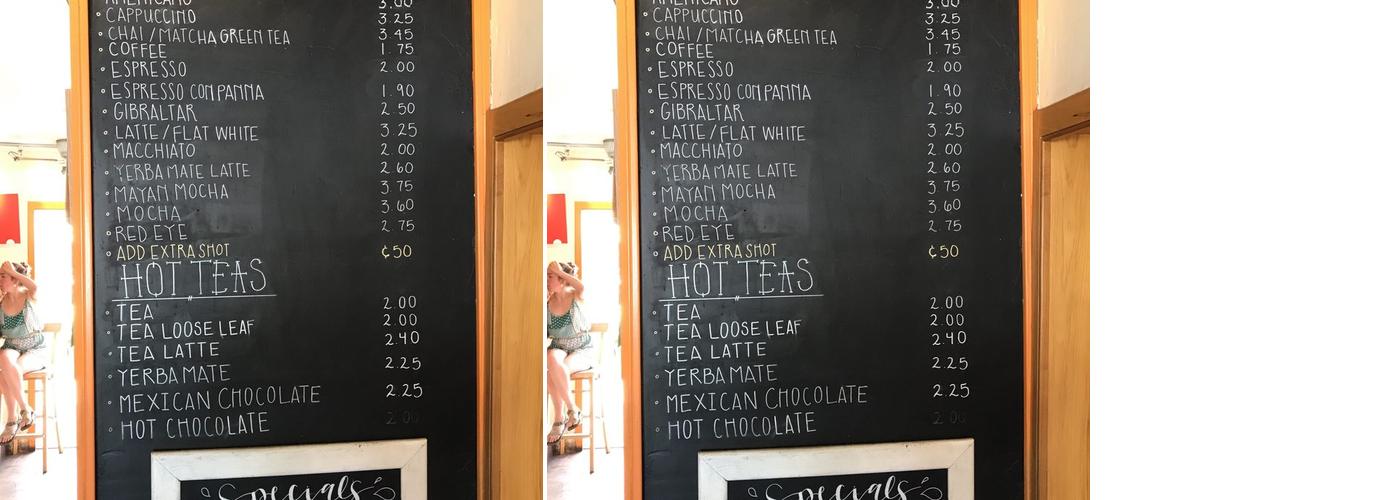 AMERICANO 3.00
CAPPUCCINO 3.25
CHAI / MATCHA GREEN TEA 3.45
COFFEE 1.75
ESPRESSO 2.00
ESPRESSO CON PANNA 1.90
GIBRALTAR 2.50
LATTE / FLAT WHITE 3.25
MACCHIATO 2.00
YERBA MATE LATTE 2.60
MAYAN MOCHA 3.75
MOCHA 3.60
RED EYE 2.75
ADD EXTRA SHOT ¢50
HOT TEAS
TEA 2.00
TEA LOOSE LEAF 2.00
TEA LATTE 2.40
YERBA MATE 2.25
MEXICAN CHOCOLATE 2.25
HOT CHOCOLATE 2.00
Specials
AMERICANO 3.00
CAPPUCCINO 3.25
CHAI / MATCHA GREEN TEA 3.45
COFFEE 1.75
ESPRESSO 2.00
ESPRESSO CON PANNA 1.90
GIBRALTAR 2.50
LATTE / FLAT WHITE 3.25
MACCHIATO 2.00
YERBA MATE LATTE 2.60
MAYAN MOCHA 3.75
MOCHA 3.60
RED EYE 2.75
ADD EXTRA SHOT ¢50
HOT TEAS
TEA 2.00
TEA LOOSE LEAF 2.00
TEA LATTE 2.40
YERBA MATE 2.25
MEXICAN CHOCOLATE 2.25
HOT CHOCOLATE 2.00
Specials